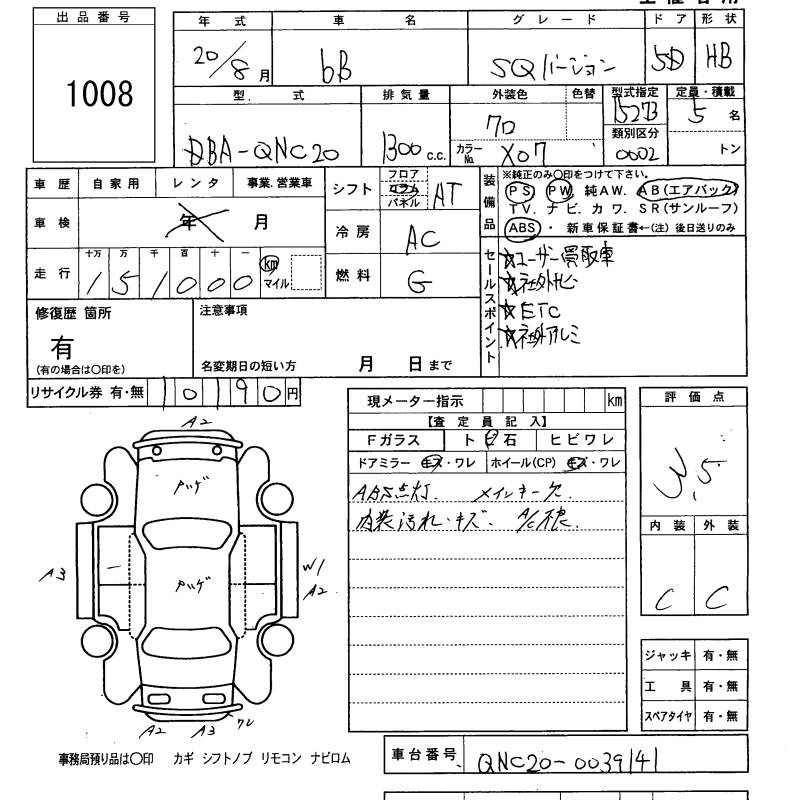 出品番号
1008
年式 車名 グレード ドア 形状
20/8月 bB SQバージョン 5D HB
型式 排気量 外装色 色替 型式指定 定員・積載
DBA-QNC20 1300c.c. クロ 15273 5名
カラーNo. X07 類別区分 0002 トン
車歴 自家用 レンタ 事業.営業車
車検 年 月
十万 万 千 百 十 一
走行 151000 km マイル
シフト フロア コラム パネル AT
冷房 AC
燃料 G
装備品
※純正のみ〇印をつけて下さい。
PS PW 純AW. AB(エアバック)
TV. ナビ. カワ. SR(サンルーフ)
ABS・新車保証書←(注)後日送りのみ
セールスポイント
☆ユーザー買取車
☆社外ナビ
☆ETC
☆社外アルミ
修復歴 箇所
有
(有の場合は〇印を)
注意事項
名変期日の短い方 月 日まで
リサイクル券 有・無 10190円
現メーター指示 km
【査定員記入】
Fガラス ト ビ 石 ヒビワレ
ドアミラー キズ・ワレ ホイール(CP) キズ・ワレ
ABS点灯. メインキー欠.
内装汚れ・キズ. A/C
評価点
3.5
内装 外装
C C
ジャッキ 有・無
工具 有・無
スペアタイヤ 有・無
A2
A3
W1
A2
A2 A3 ワレ
事務局預り品は〇印 カギ シフトノブ リモコン ナビロム
車台番号 QNC20-0039141